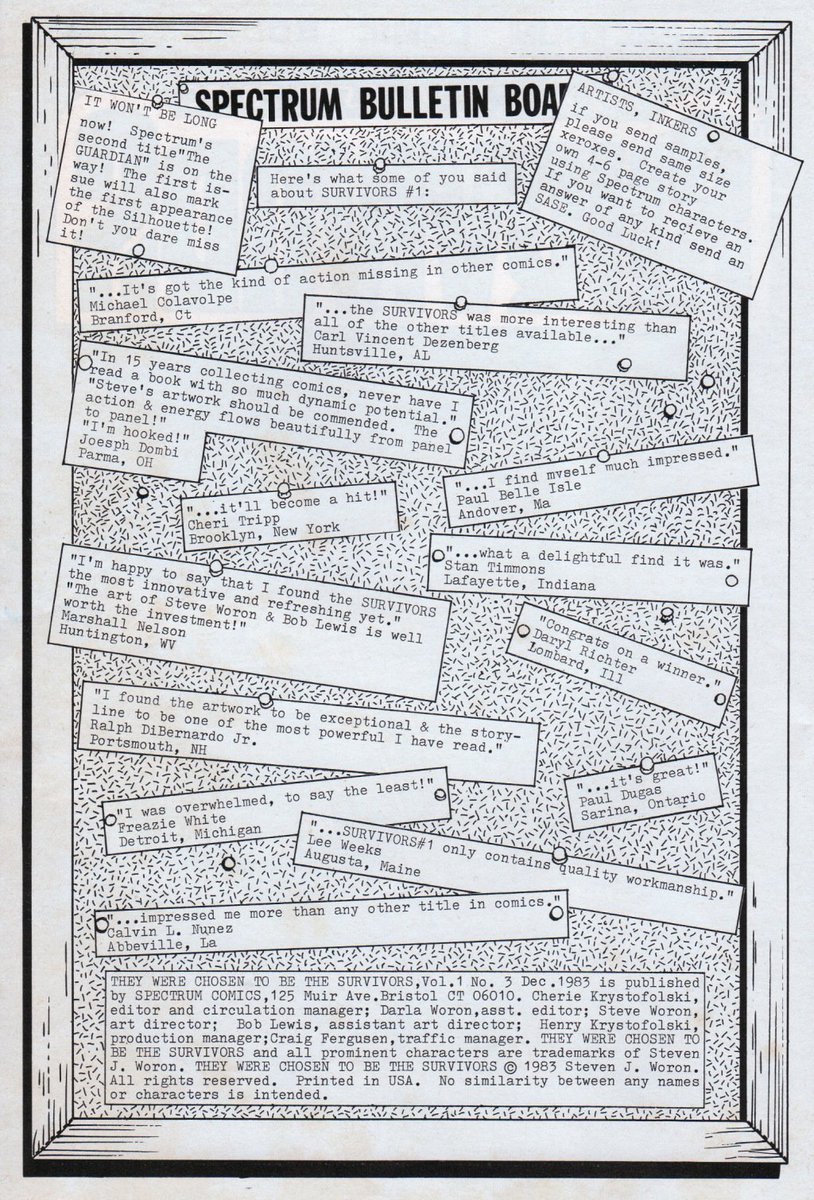 SPECTRUM BULLETIN BOA
IT WON'T BE LONG
now! Spectrum's
second title"The
GUARDIAN" is on the
way! The first is-
sue will also mark
the first appearance
of the Silhouette!
Don't you dare miss
it!
Here's what some of you said
about SURVIVORS #1:
ARTISTS, INKERS
if you send samples,
please send same size
xeroxes. Create your
own 4-6 page story
using Spectrum characters.
If you want to recieve an
answer of any kind send an
SASE. Good Luck!
"...It's got the kind of action missing in other comics."
Michael Colavolpe
Branford, Ct
"...the SURVIVORS was more interesting than
all of the other titles available..."
Carl Vincent Dezenberg
Huntsville, AL
"In 15 years collecting comics, never have I
read a book with so much dynamic potential."
"Steve's artwork should be commended. The
action & energy flows beautifully from panel
to panel!"
"I'm hooked!"
Joesph Dombi
Parma, OH
"...I find myself much impressed."
Paul Belle Isle
Andover, Ma
"...it'll become a hit!"
Cheri Tripp
Brooklyn, New York
"...what a delightful find it was."
Stan Timmons
Lafayette, Indiana
"I'm happy to say that I found the SURVIVORS
the most innovative and refreshing yet."
"The art of Steve Woron & Bob Lewis is well
worth the investment!"
Marshall Nelson
Huntington, WV
"Congrats on a winner."
Daryl Richter
Lombard, Ill
"I found the artwork to be exceptional & the story-
line to be one of the most powerful I have read."
Ralph DiBernardo Jr.
Portsmouth, NH
"...it's great!"
Paul Dugas
Sarina, Ontario
"I was overwhelmed, to say the least!"
Freazie White
Detroit, Michigan
"...SURVIVORS#1 only contains quality workmanship."
Lee Weeks
Augusta, Maine
"...impressed me more than any other title in comics."
Calvin L. Nunez
Abbeville, La
THEY WERE CHOSEN TO BE THE SURVIVORS,Vol.1 No. 3 Dec.1983 is published
by SPECTRUM COMICS,125 Muir Ave.Bristol CT 06010. Cherie Krystofolski,
editor and circulation manager; Darla Woron,asst. editor; Steve Woron,
art director; Bob Lewis, assistant art director; Henry Krystofolski,
production manager;Craig Fergusen,traffic manager. THEY WERE CHOSEN TO
BE THE SURVIVORS and all prominent characters are trademarks of Steven
J. Woron. THEY WERE CHOSEN TO BE THE SURVIVORS © 1983 Steven J. Woron.
All rights reserved. Printed in USA. No similarity between any names
or characters is intended.